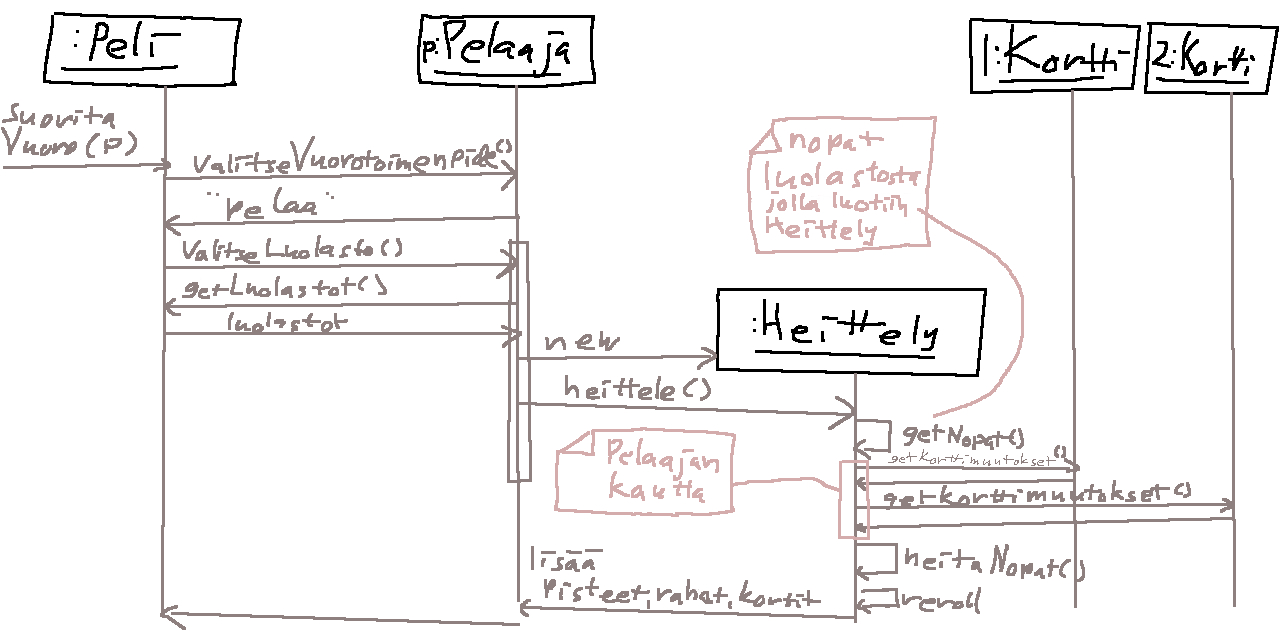 :Peli
p:Pelaaja
1:Kortti
2:Kortti
Suorita
Vuoro(p)
ValitseVuorotoimenpide()
"pelaa"
ValitseLuolasto()
getLuolastot()
luolastot
nopat
luolastosta
jolla luotiin
Heittely
:Heittely
new
heittele()
getNopat()
getKorttimuutokset()
Pelaajan
kautta
getkorttimuutokset()
heitaNopat()
lisää
pisteet,rahat,kortit
reroll